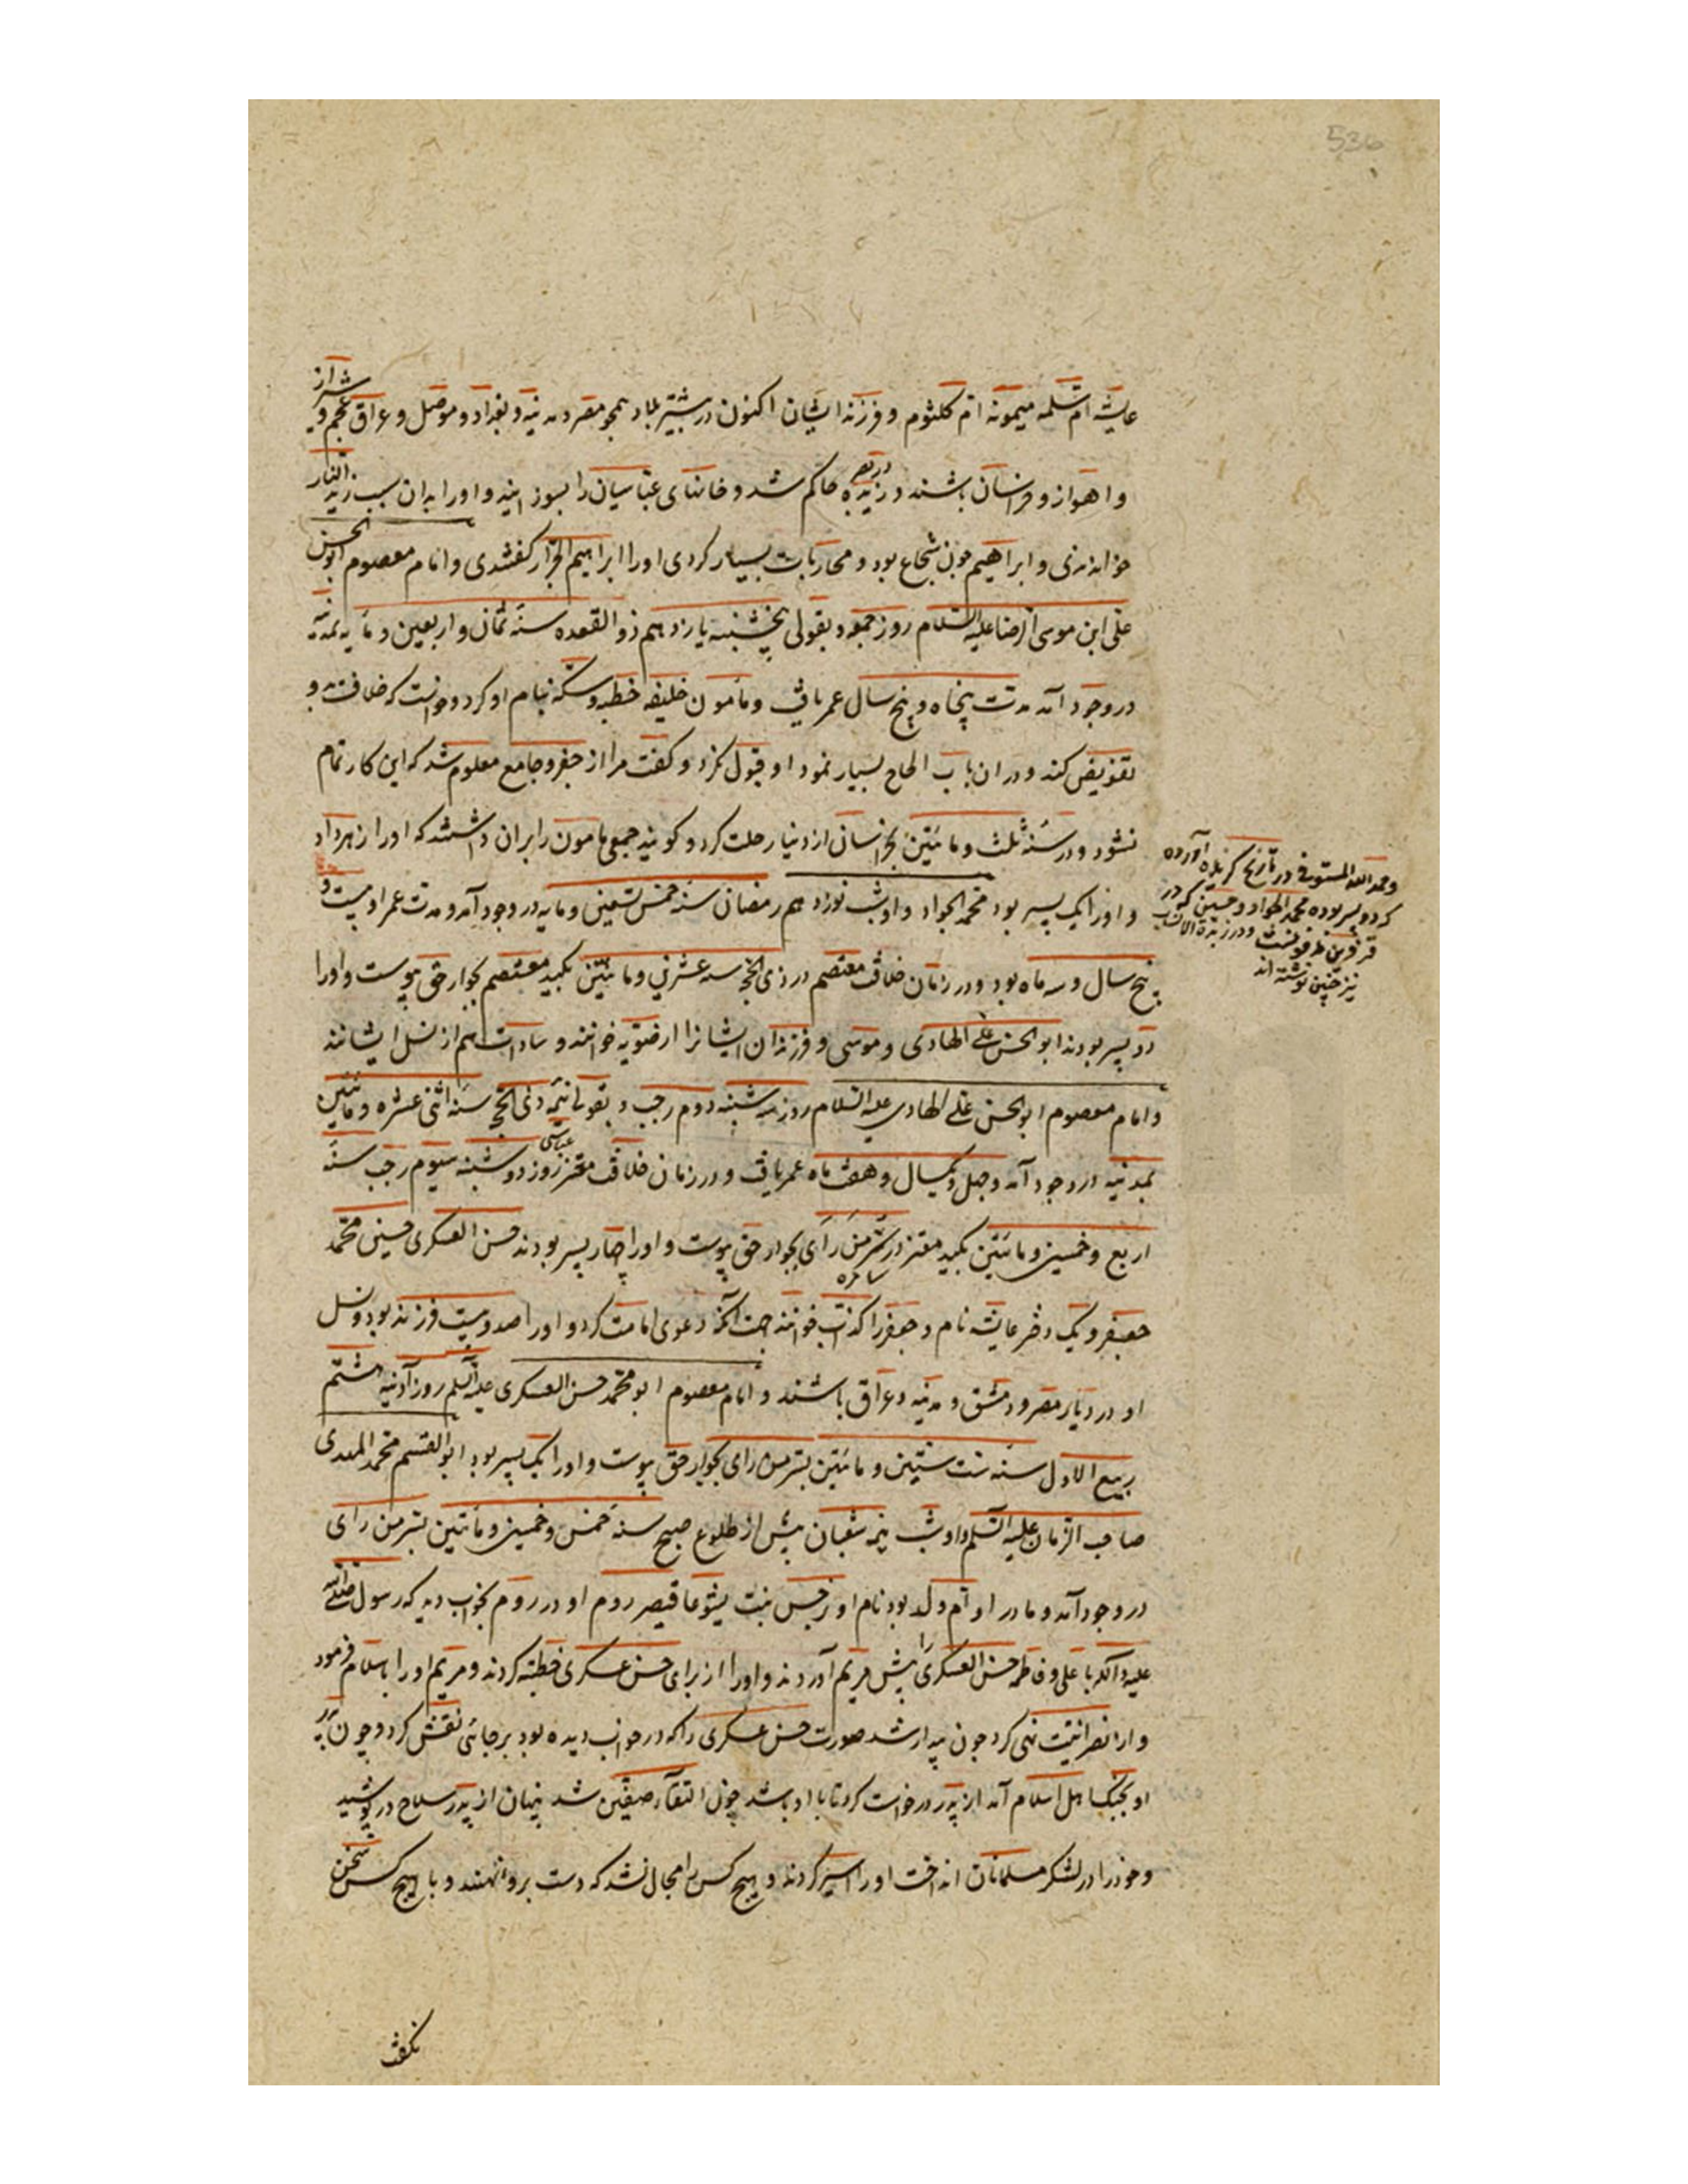 عایشه ام سلمه میمونه ام کلثوم و فرزندا ایشان اکنون در بیشتر بلاد همچو مصر و مدینه و بغداد و موصل و عراق عجم و شیراز
و اهواز و خراسان باشند و زید در بصره حاکم شد و خانهای عباسیان را بسوزانید و او را بدان سبب زید النار
خواندندی و ابراهیم چون شجاع بود و محاربات بسیار کردی او را ابراهیم الجزار گفتندی و امام معصوم ابو الحسن
علی ابن موسی الرضا علیه السلام روز جمعه و بقولی پنجشنبه یازدهم ذو القعده سنه ثمان و اربعین و مایه بمدینه
در وجود آمد مدت پنجاه و پنج سال عمر یافت و مأمون خلیفه خطبه و سکه بنام او کرد و خواست که خلافت بدو
تفویض کند و در ان باب الحاح بسیار نمود او قبول نکرد و گفت مرا از جفر و جامع معلوم شد که این کار تمام
نشود و در سنه ثلث و مائتین بخراسان از دنیا رحلت کرد و گویند جمعی مامون را بران داشتند که او را زهر داد
و او را یک پسر بود محمد الجواد و او شب نوزدهم رمضان سنه خمس تسعین و مایه در وجود آمد و مدت عمر او بیست و
پنج سال و سه ماه بود و در زمان خلافت معتصم در ذی الحجه سنه عشرین و مائتین بکید معتصم بجوار حق پیوست و او را
دو پسر بودند ابو الحسن علی الهادی و موسی و فرزندان ایشانرا رضویه خوانند و سادات هم از نسل ایشانند
و امام معصوم ابو الحسن علی الهادی علیه السلام روز سه شنبه دوم رجب و بقولی نیمه ذی الحجه سنه اثنی عشره و مائتین
بمدینه در وجود آمد و چهل و یکسال و هفت ماه عمر یافت و در زمان خلافت معتز عباسی روز دوشنبه سیوم رجب سنه
اربع و خمسین و مائتین بکید معتز در سر من رای سامره بجوار حق پیوست و او را چهار پسر بودند حسن العسکری حسین محمد
جعفر و یک دختر عایشه نام و جعفر را کذاب خوانند جهت آنکه دعوی امامت کرد و او را صد و بیست فرزند بود و نسل
او در دیار مصر و دمشق و مدینه و عراق باشند و امام معصوم ابو محمد حسن العسکری علیه السلم روز آدینه هشتم
ربیع الاول سنه ست ستین و مائتین بسر من رای بجوار حق پیوست و او را یک پسر بود ابو القسم محمد المهدی
صاحب الزمان علیه السلم و او شب نیمه شعبان پیش از طلوع صبح سنه خمس و خمسین و مائتین بسر من رای
در وجود آمد و مادر او ام ولد بود نام او نرجس بنت یشوعا قیصر روم او در روم بخواب دید که رسول صلی الله
علیه و آله با علی و فاطمه حسن العسکری را پیش مریم آوردند و او را از برای حسن عسکری خطبه کردند و مریم او را باسلام فرمود
و از نصرانیت نهی کرد چون بیدار شد صورت حسن عسکری را که در خواب دیده بود بر جائی نقش کرد و چون پدر
او بجنک اهل اسلام آمد از پدر درخواست کرد تا با او باشد چون التقاء صفین شد پنهان از پدر سلاح در پوشید
و خود را در لشکر مسلمانان انداخت او را اسیر کردند و هیچ کس را مجال نشد که دست برو نهند و با هیچ کس سخن
نگفت
و حمد الله المستوفی در تاریخ گزیده آورده
که دو پسر بوده محمد الجواد و حسین که در
قزوین مدفونست و در زبدة الانساب
نیز چنین نوشته اند
536